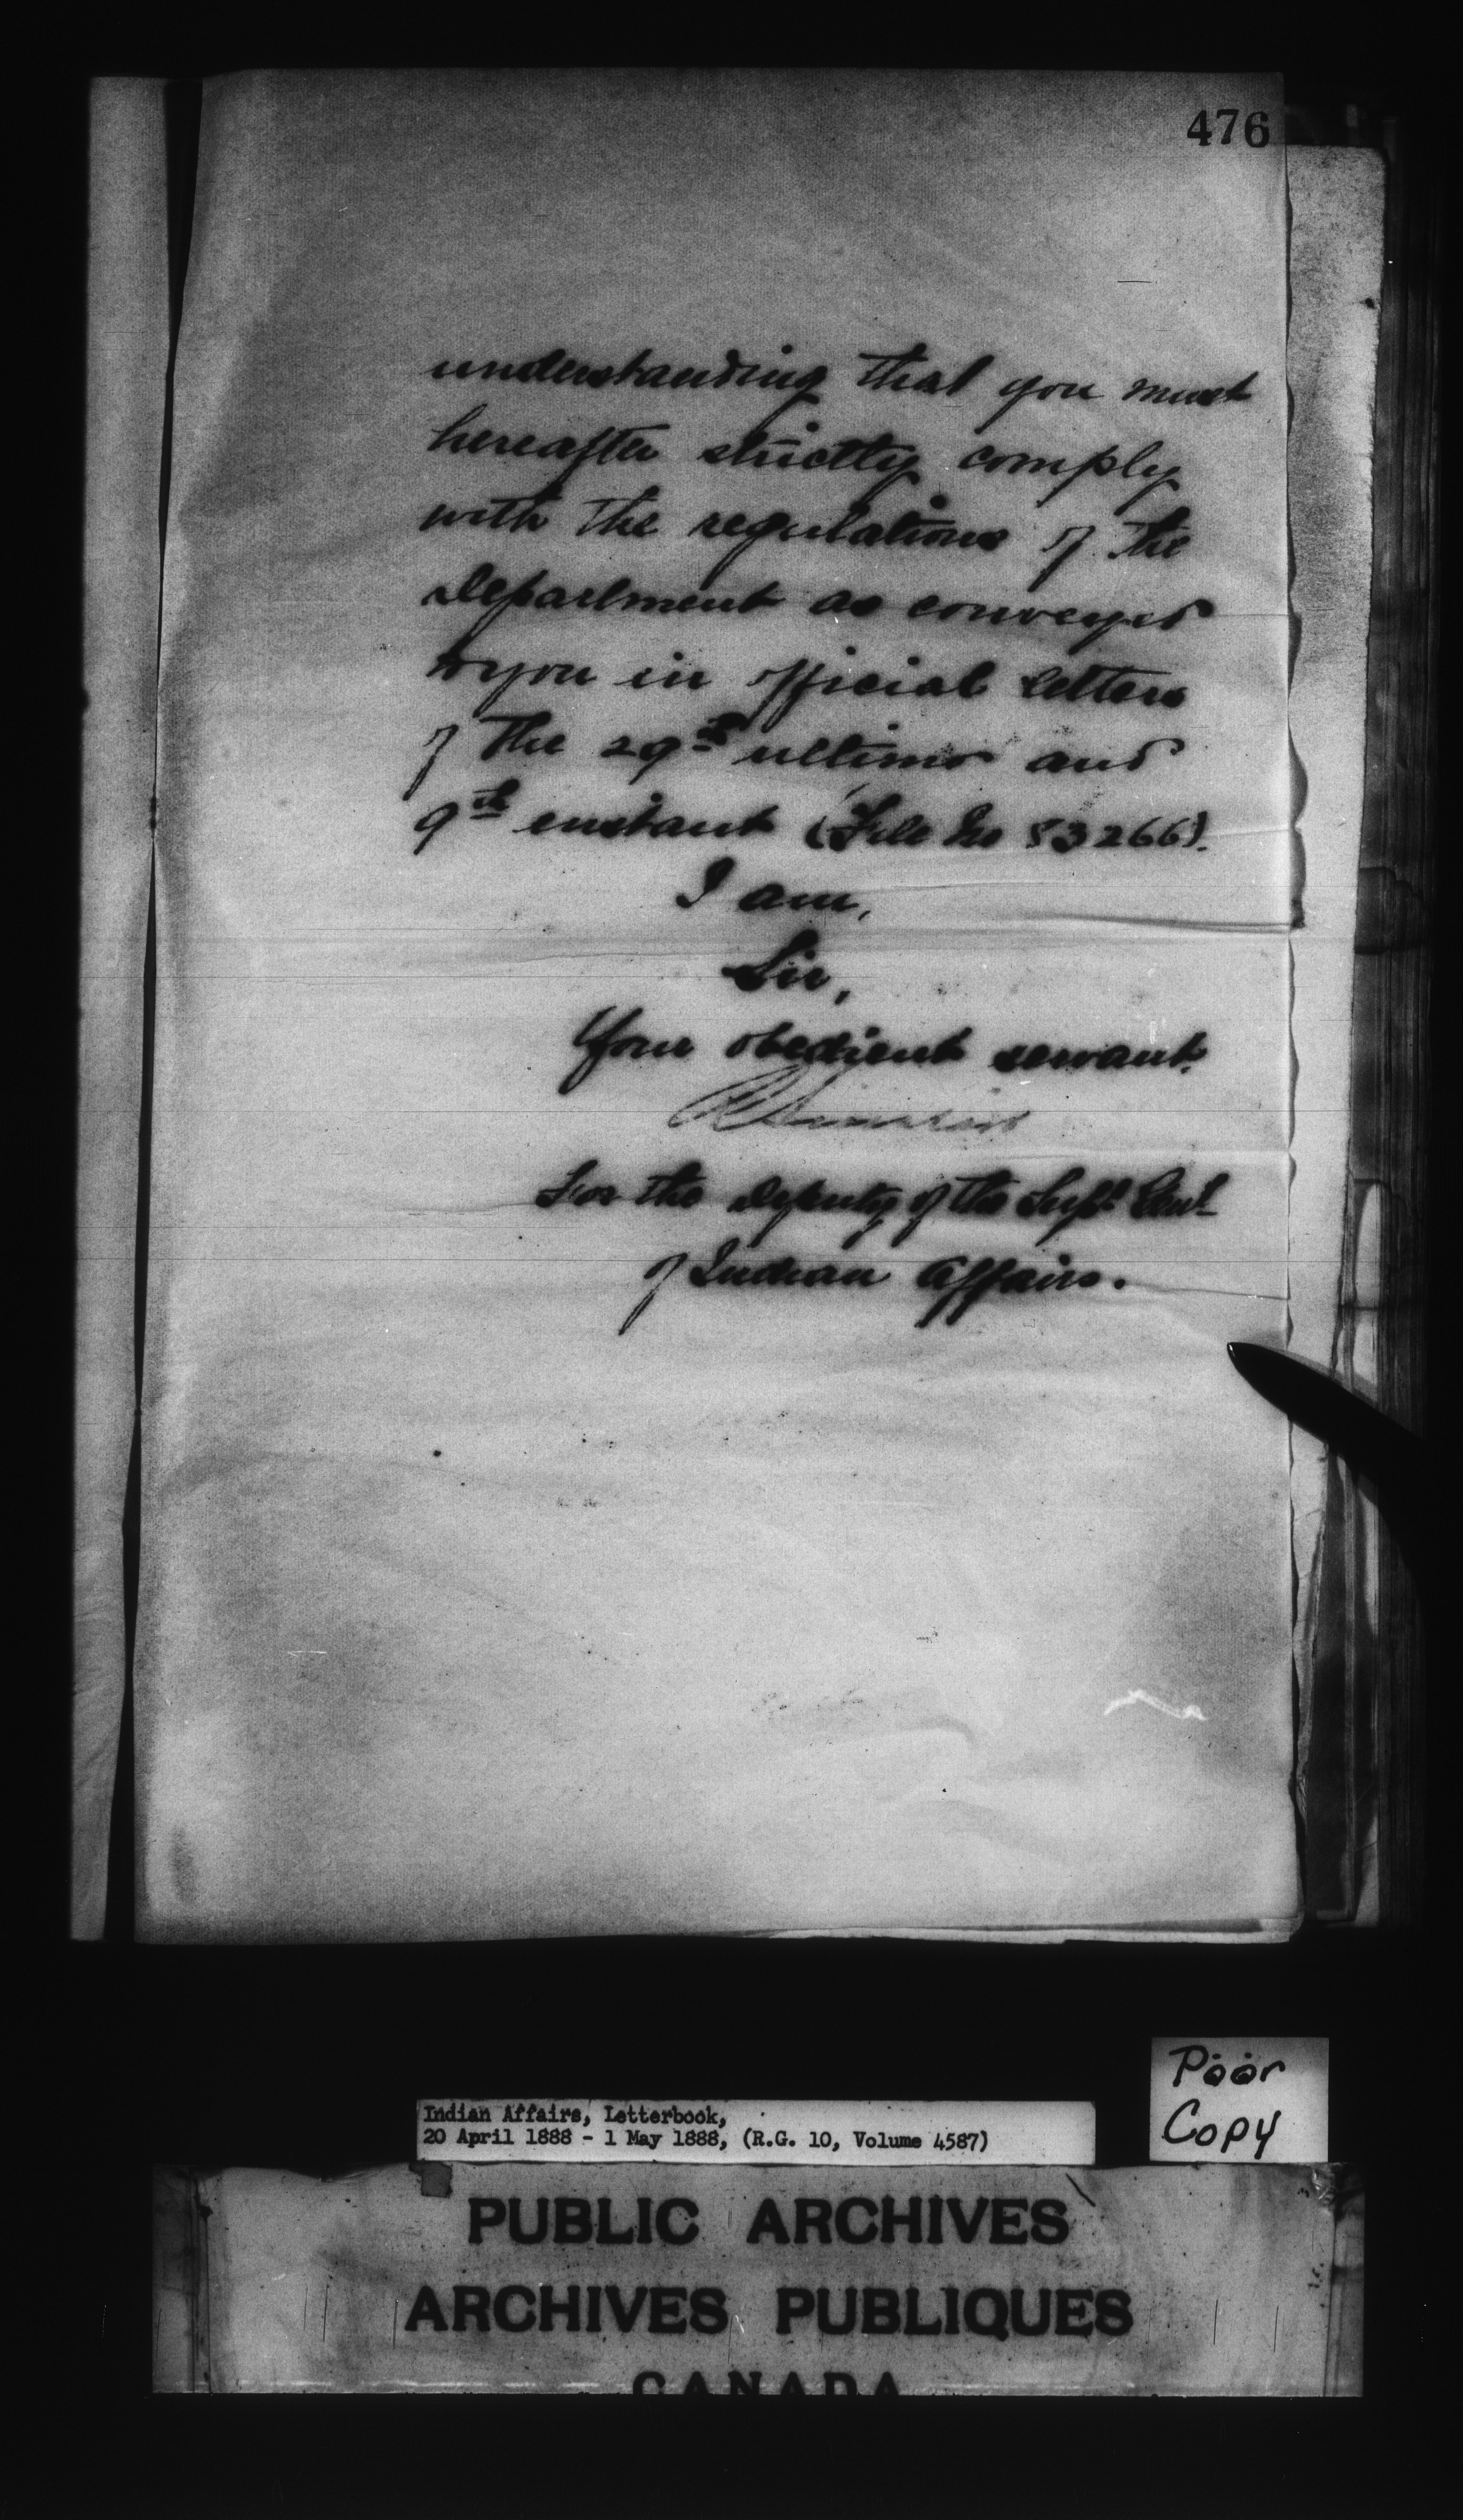 476
understanding that you must
hereafter strictly comply
with the regulations of the
Department as conveyed
to you in official letters
of the 29th ultimo and
9th instant (File No 83266).
I am,
Sir,
Your obedient servant.
For the Deputy of the Supt Genl
of Indian Affairs.
Poor
Copy
Indian Affairs, Letterbook,
20 April 1888 - 1 May 1888, (R.G. 10, Volume 4587)
PUBLIC ARCHIVES
ARCHIVES PUBLIQUES
CANADA